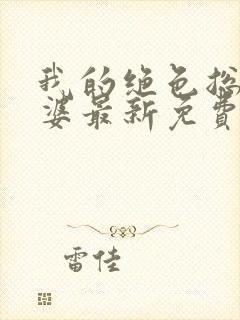 我的绝色总
婆最新免费
雷佳